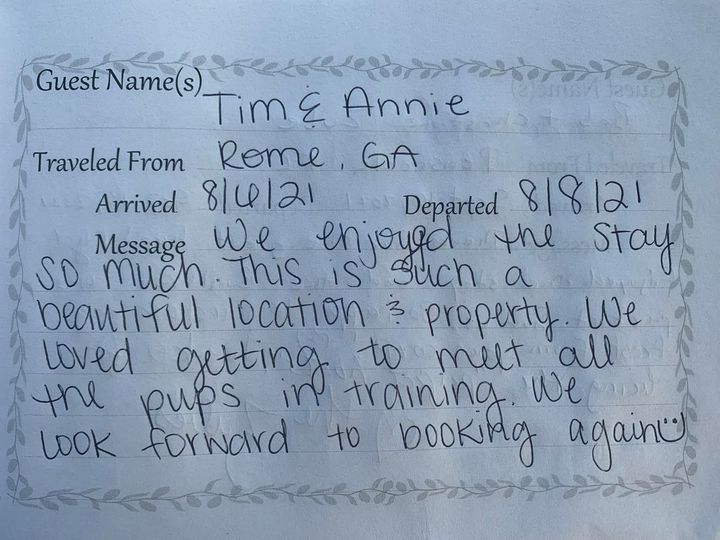 Guest Name(s) Tim & Annie
Traveled From Rome, GA
Arrived 8/6/21 Departed 8/8/21
Message We enjoyed the stay
so much. This is such a
beautiful location & property. We
loved getting to meet all
the pups in training. We
look forward to booking again